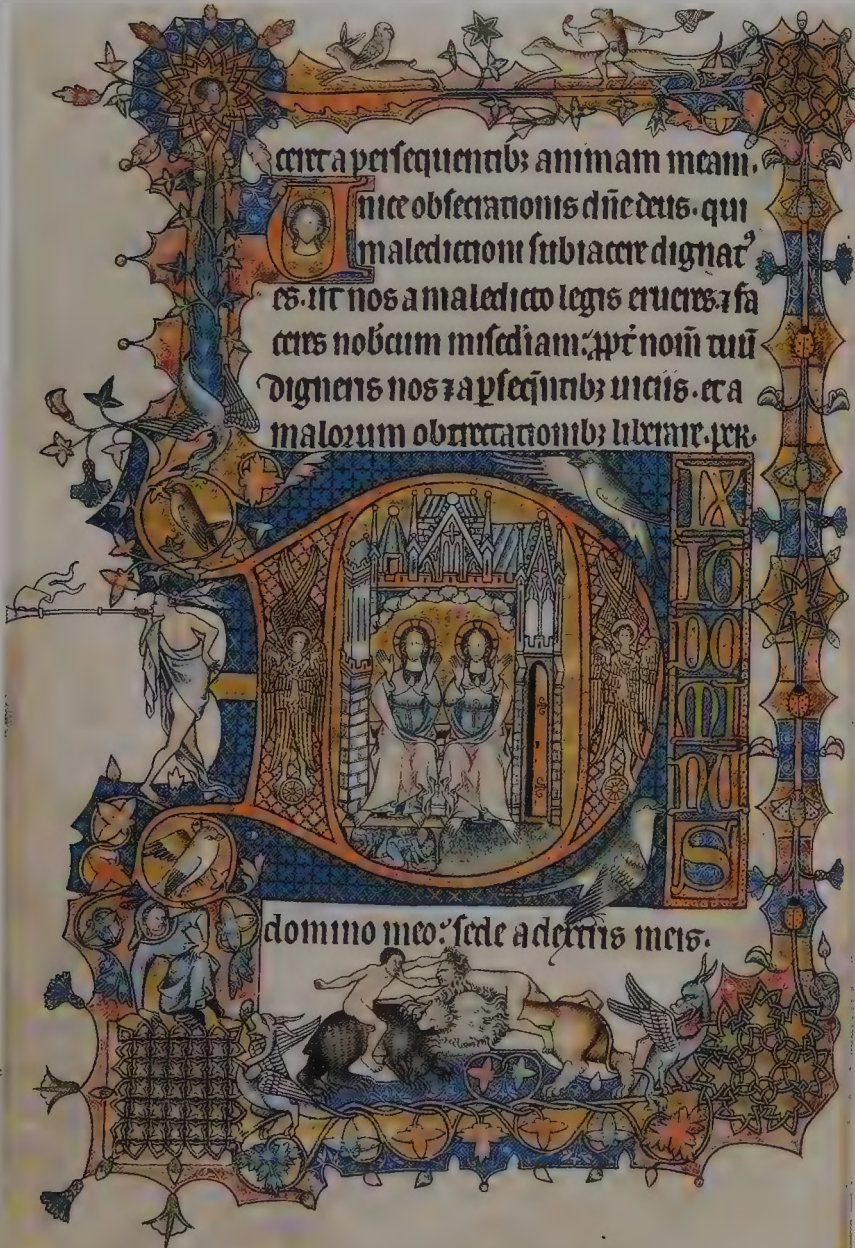 ceret a persequentibꝫ animam meam.
Unice obsecrationis dn̄e deus. qui
maledictioni subiacere dignatꝰ
es. ut nos a maledicto legis erueres. ⁊ fa
ceres nob̄cum misc̄diam: ꝓpt̄ nom̄ tuū
digneris nos ⁊ a ꝑseq̄ntibꝫ uiciis. et a
malorum obtrectationibꝫ liberare. per.
DIX
IT
DO
MI
NU
S
domino meo: sede a dextris meis.